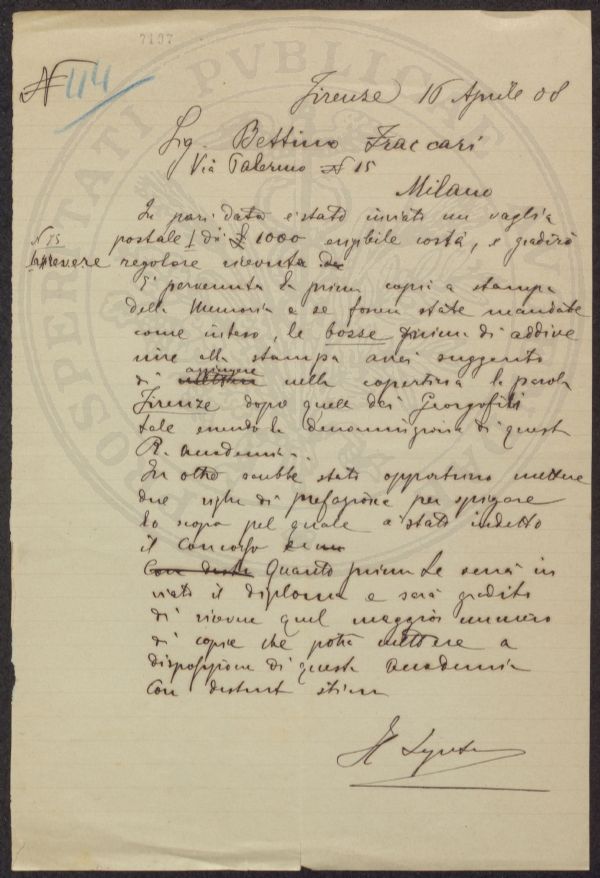 7197
N 414
Firenze 16 Aprile 08
Sig. Bettino Fraccari
Via Palermo N 15
Milano
In pari data è stato inviato un vaglia
N 75
postale di £ 1000 esigibile costà, e gradirò
regolare ricevuta
È pervenuta la prima copia a stampa
della Memoria e se fossero state mandate
come inteso, le bosse prima di addive
nire alla stampa avrei suggerito
di aggiungere nella copertina la parola
Firenze dopo quelle dei Georgofili
tale essendo la denominazione di questa
R. Accademia.
In oltre sarebbe stato opportuno mettere
due righe di prefazione per spiegare
lo scopo pel quale è stato indetto
il concorso
Quanto prima Le verrà in
viato il diploma e sarà gradito
di ricevere quel maggior numero
di copie che potrà mettere a
disposizione di questa Accademia
Con distint stima
Il
PROSPERITATI PUBLICAE